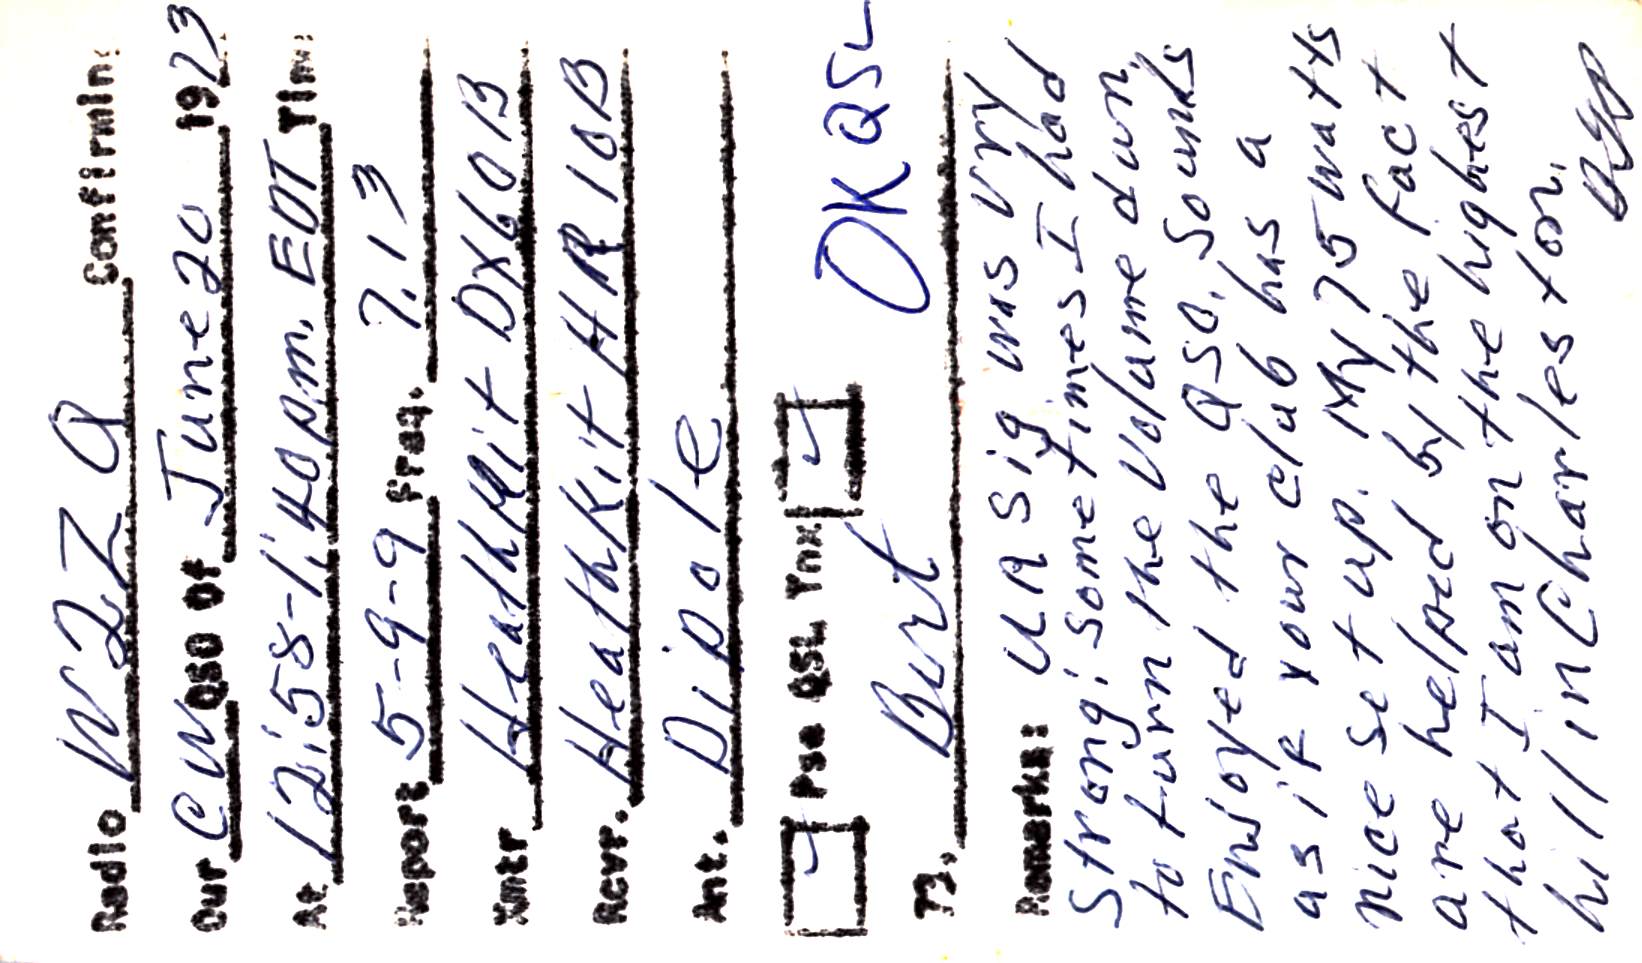 Radio W2ZQ Confirming
Our CW QSO Of June 20 1973
At 12:58-1:40 p.m. EDT Time
Report 5-9-9 Freq. 7.13
Xmtr HeathKit DX60B
Rcvr. HeathKit HR10B
Ant. Dipole
Pse QSL Tnx
OK QSL
73, Burt
Remarks: UR Sig was vry
strong; sometimes I had
to turn the volume down.
Enjoyed the QSO. Sounds
as if your club has a
nice set up. My 75 watts
are helped by the fact
that I am on the highest
hill in Charleston.